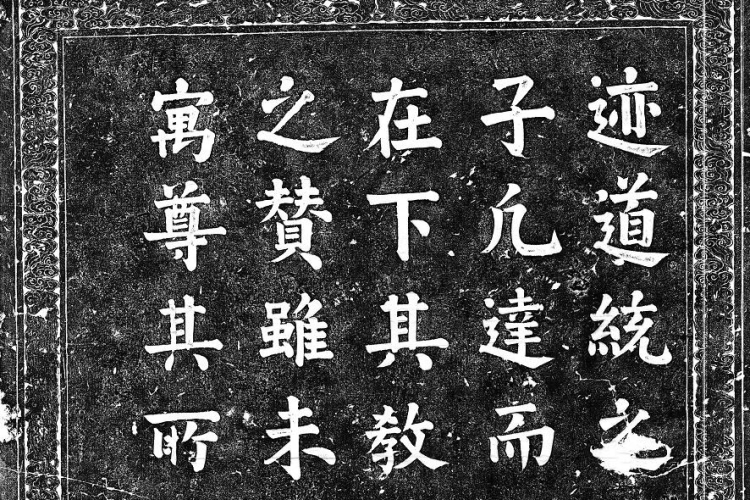 迹道統之
子凢達而
在下其教
之賛雖未
寓尊其所